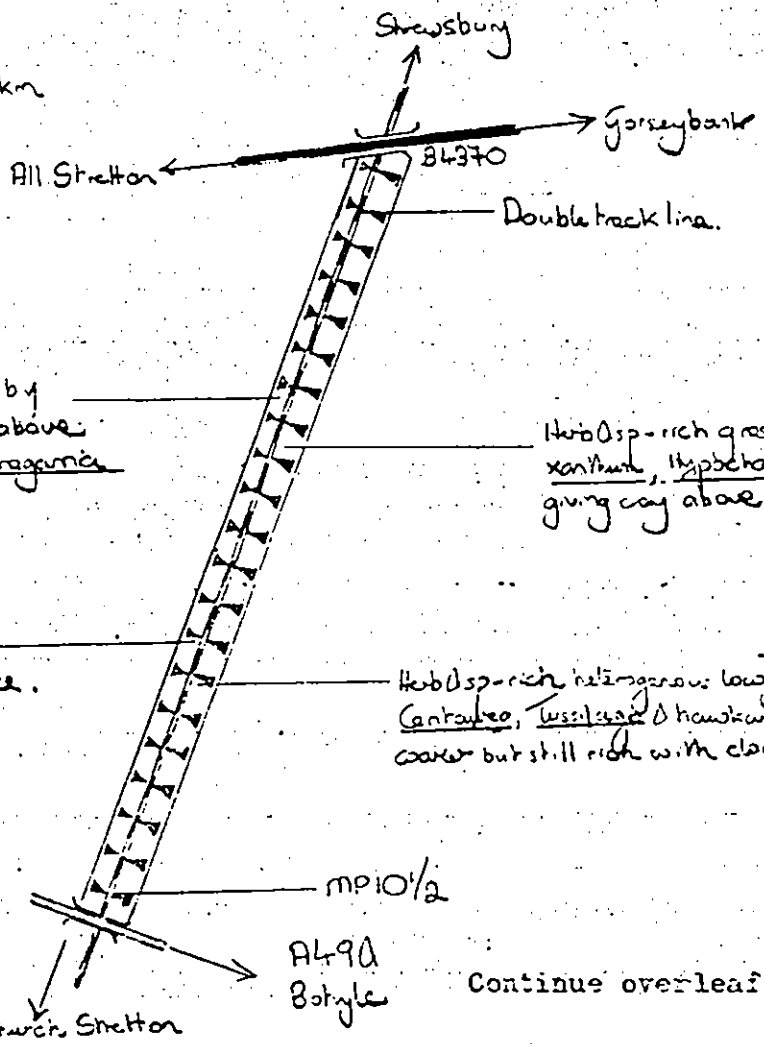 Strewsbury
km
Gorseybank
All Stretton
B4370
Double track line.
by
above
Herb & sp-rich gras
xanthum,
giving way above
Herb & sp-rich heterogenous low
Tussilago & hawkw
coarser but still rich with
MP10½
A49 &
Botvyle
Continue overleaf
Church Stretton